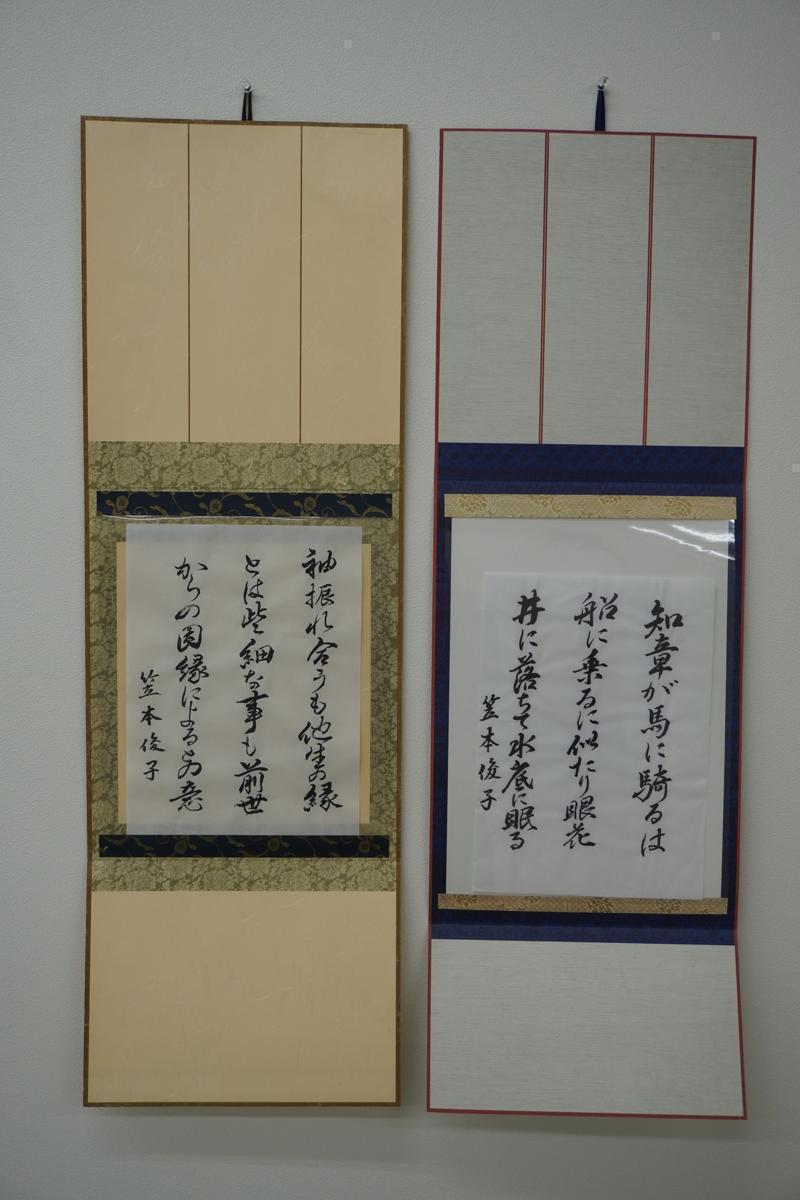 袖振れ合うも他生の縁
とは些細な事も前世
からの因縁によるとの意
笠本俊子
知章が馬に騎るは
船に乗るに似たり眼花
井に落ちて水底に眠る
笠本俊子